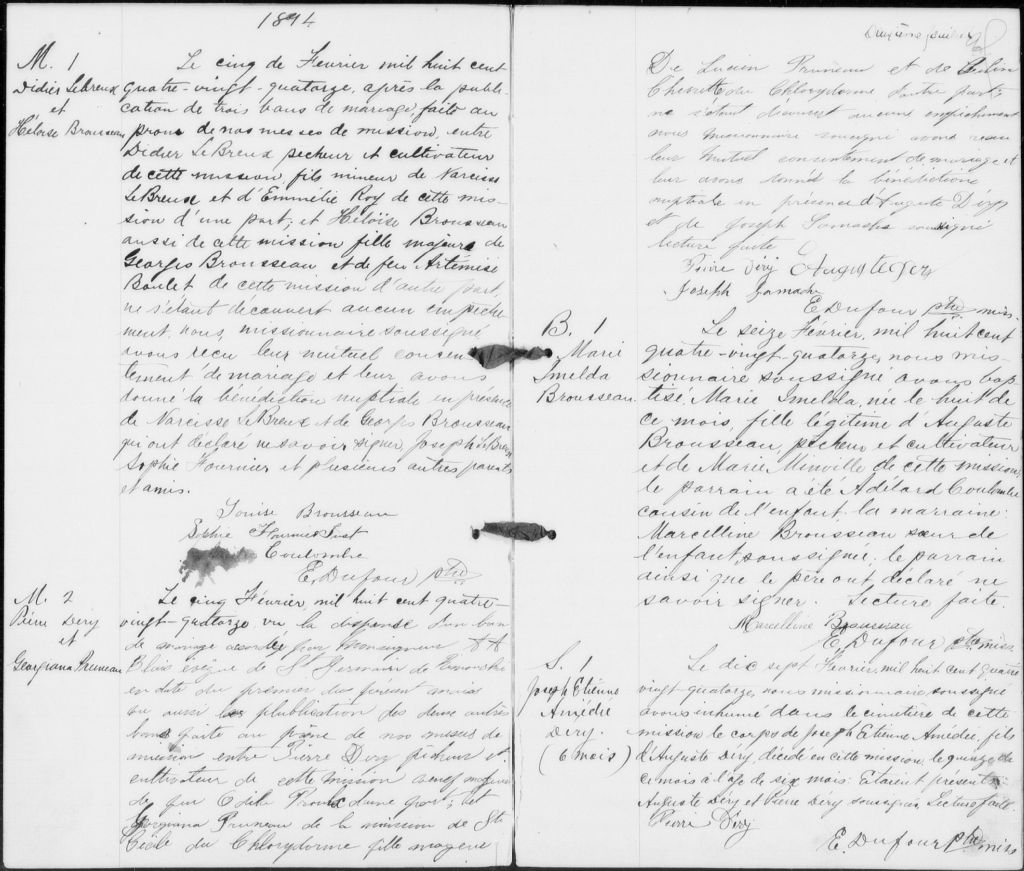 1894
M. 1
Didier Lebreux
et
Héloïse Brousseau
Le cinq de Février mil huit cent
quatre-vingt-quatorze, après la publi-
cation de trois bans de mariage, faite au
prone de nos messes de mission, entre
Didier LeBreux pecheur et cultivateur
de cette mission, fils mineur de Narcisse
LeBreux et d'Emmélie Roy de cette mis-
sion d'une part; et Héloïse Brousseau
aussi de cette mission fille majeure de
Georges Brousseau, et de feu Artémise
Boulet de cette mission d'autre part,
ne s'étant découvert aucun empêche-
ment nous, missionnaire soussigné
avons reçu leur mutuel consen-
tement de mariage et leur avons
donné la bénédiction nuptiale en présence
de Narcisse LeBreux et de Georges Brousseau
qui ont déclaré ne savoir signer, Joseph LeBreux
Sophie Fournier et plusieurs autres parents
et amis.
Louise Brousseau
Sophie Fournier
Coulombe
E. Dufour ptre
M. 2
Pierre Dery
et
Georgiana Pruneau
Le cinq Février, mil huit cent quatre-
vingt-quatorze vu la dispense d'un ban
de mariage accordée par Monseigneur
Blais évêque de St Germain de Rimouski
en date du premier du présent mois
vu aussi la plublication des deux autres
bans faite au prône de nos messes de
mission entre Pierre Dery pêcheur et
cultivateur de cette mission
de Odile Proulx d'une part; et
Georgiana Pruneau de la mission de Ste
Cécile du Chlorydorme fille mageure
Deuxième feuillet
De Lucien Pruneau et de
du Chlorydorme d'autre part;
ne s'étant découvert aucun empêchement
nous missionnaire soussigné avons reçu
leur mutuel consentement de mariage et
leur avons donné la bénédiction
nuptiale en présence d'Auguste Déry
et de Joseph Gamache soussigné
lecture faite
Pierre Déry Auguste Dery
Joseph Gamache
E. Dufour ptre miss.
B. 1
Marie
Imelda
Brousseau
Le seize Février, mil huit cent
quatre-vingt-quatorze, nous mis-
sionnaire soussigné avons bap-
tisé, Marie Imelda, née le huit de
ce mois, fille légitime d'Auguste
Brousseau, pêcheur et cultivateur
et de Marie Minville de cette mission,
le parrain a été Adélard Coulombe
cousin de l'enfant la marraine:
Marcelline Brousseau sœur de
l'enfant, soussignée; le parrain
ainsi que le père ont déclaré ne
savoir signer. Lecture faite.
Marcelline Brousseau
E. Dufour ptre miss.
S. 1
Joseph Etienne
Amédée
Déry.
(6 mois)
Le dic sept Février, mil huit cent quatre
vingt-quatorze, nous missionnaire soussigné
avons inhumé dans le cimetière de cette
mission le corps de Joseph Etienne Amédée, fils
d'Auguste Déry, décédé en cette mission, le quinze de
ce mois à l'age de six mois. Etaient présents
Auguste Déry et Pierre Déry soussignés Lecture faite
Pierre Déry
E. Dufour ptre miss